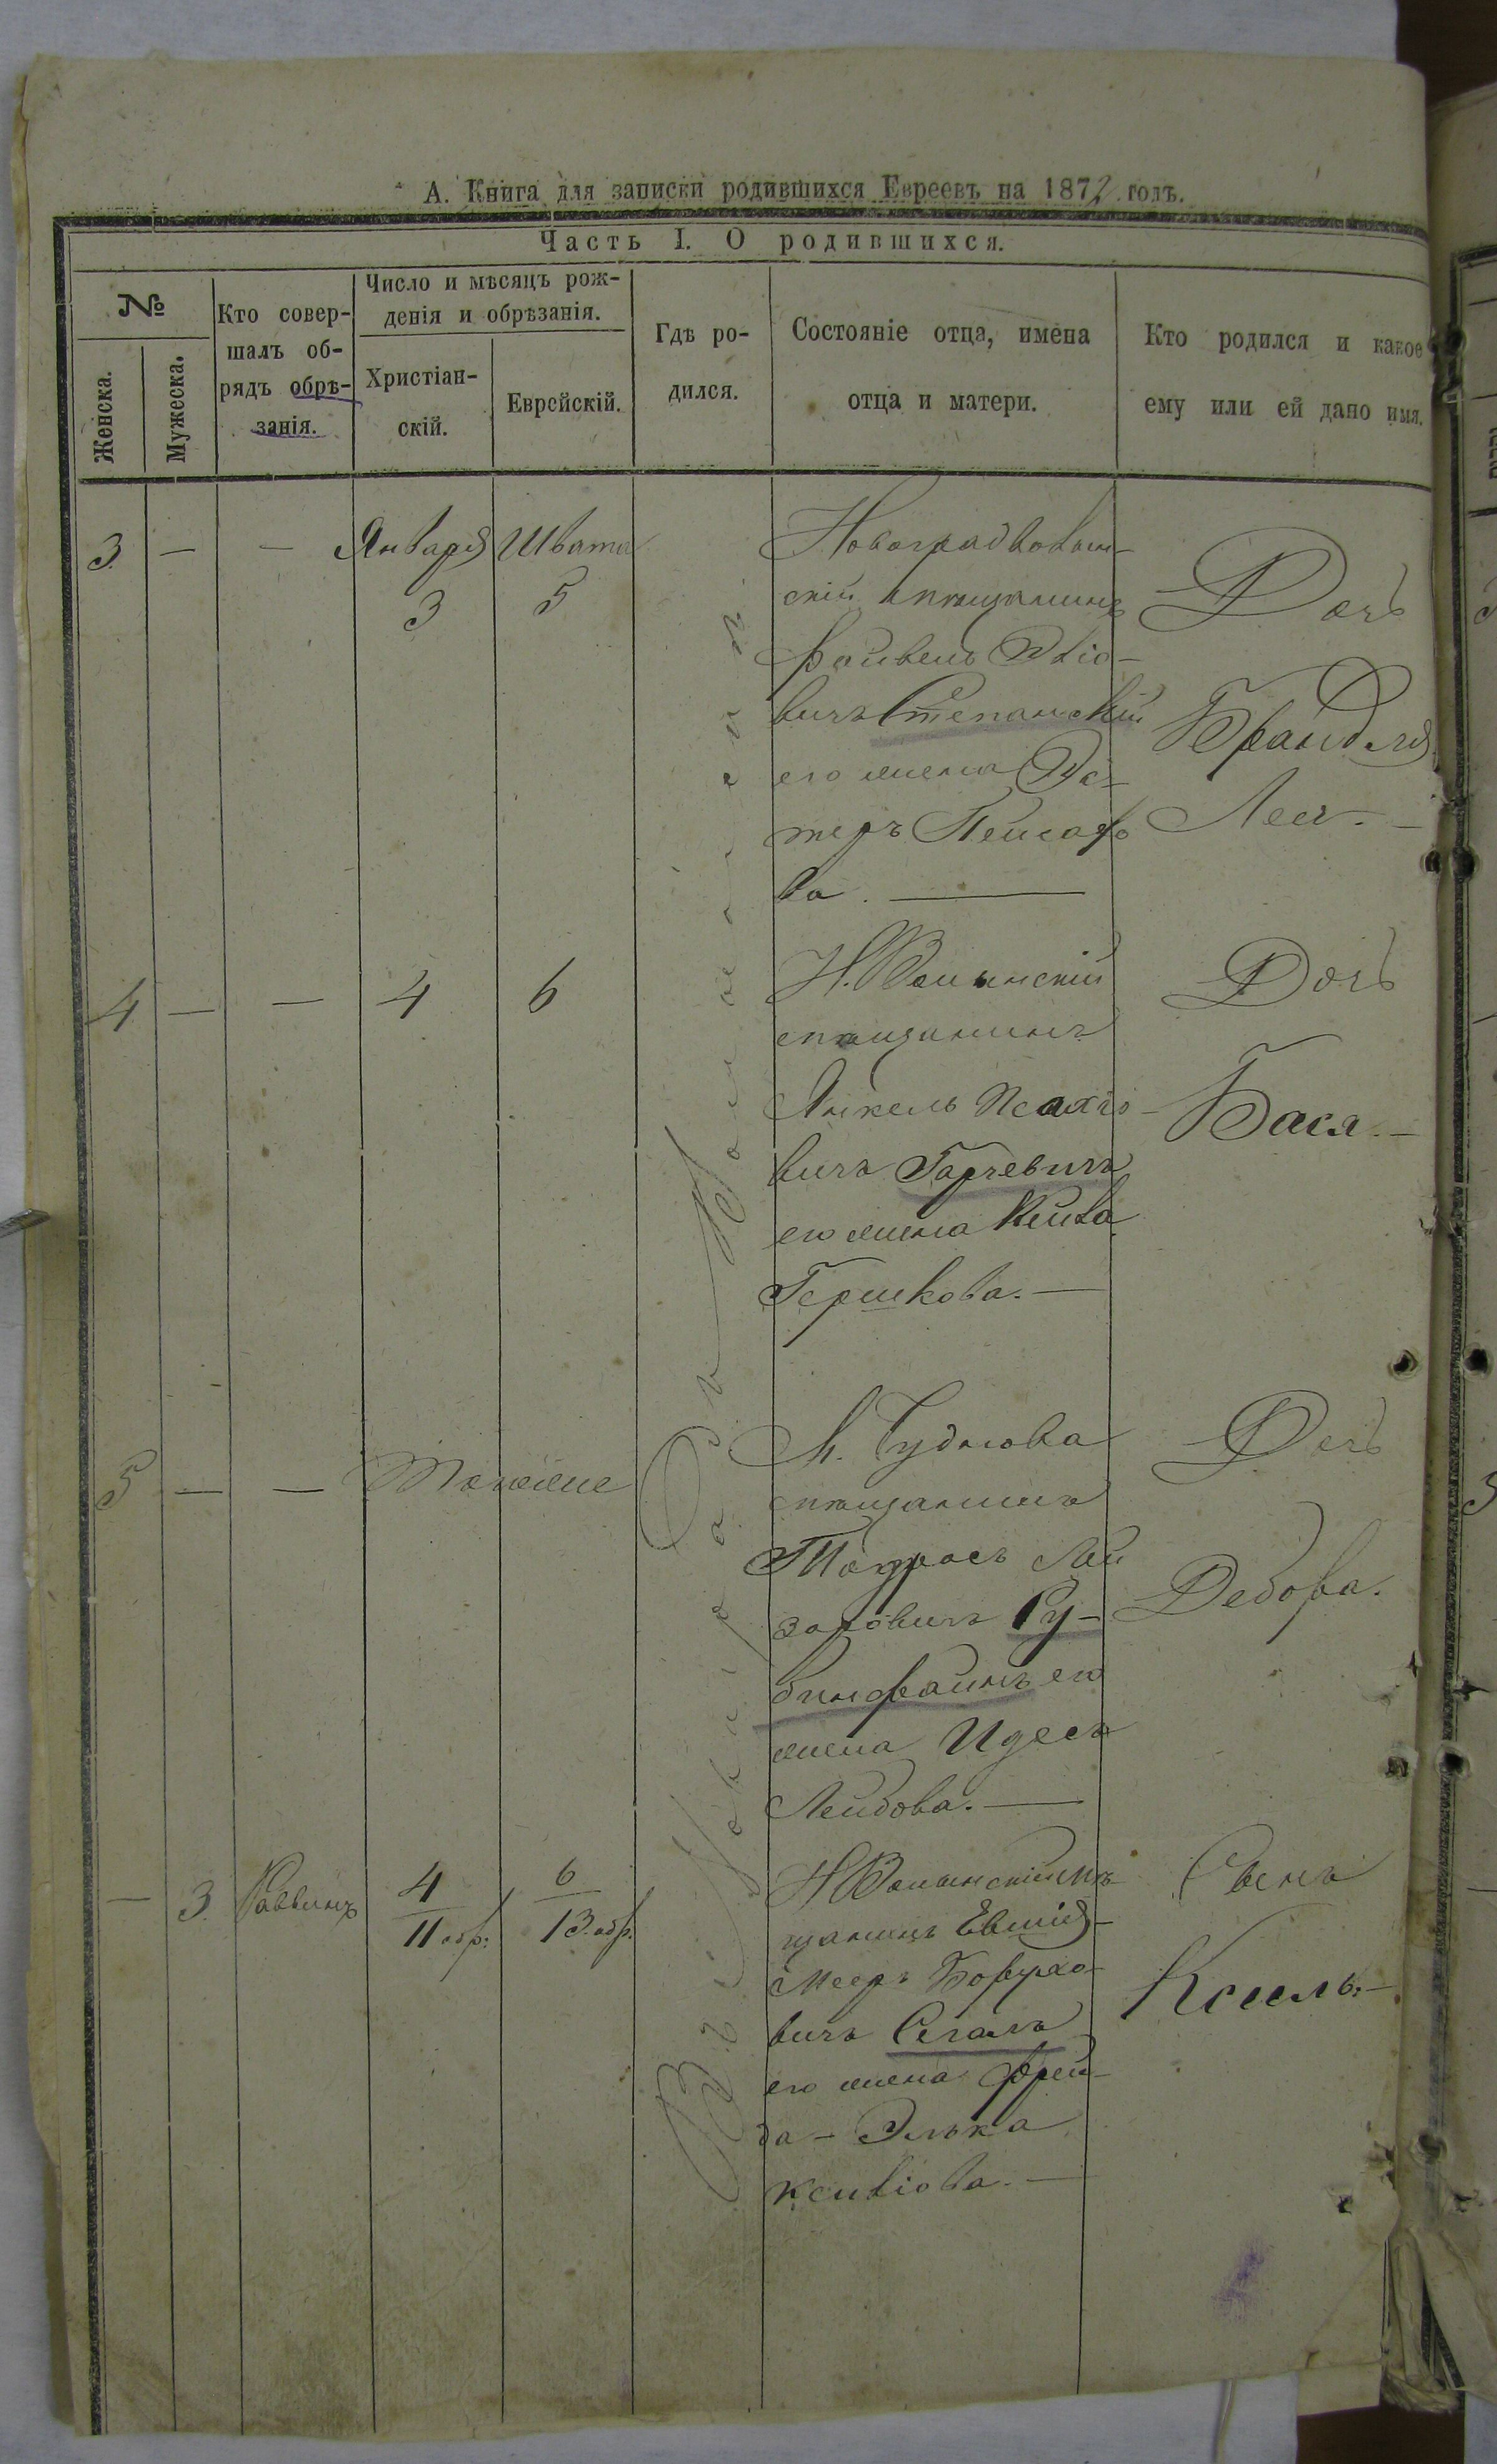 А. Книга для записки родившихся Евреевъ на 1872 годъ.
Часть I. О родившихся.
№
Женска.
Мужеска.
Кто совер-
шалъ об-
рядъ обрѣ-
занія.
Число и мѣсяцъ рож-
денія и обрѣзанія.
Христіан-
скій.
Еврейскій.
Гдѣ ро-
дился.
Состояніе отца, имена
отца и матери.
Кто родился и какое
ему или ей дано имя.
Въ г. Новградъ Волынскѣ
3 — — Января Швата
3 5
Новоградволын-
скій мѣщанинъ
Файвель
вичъ Степанскій
его жена Эс-
теръ Пейсахо
ва. —
Дочь
Брандля
Лея. —
4 — — 4 6
Н. Волынскій
мѣщанинъ
Янкель
вичъ Гарчевичъ
его жена Кейва
Гершкова. —
Дочь
Бася. —
5 — — Тоже
М. Чуднова
мѣщанинъ
Тодросъ Лей
заровичъ Ру-
бинфайнъ его
жена Идесъ
Лейбова. —
Дочь
Дебора.
— 3. Раввинъ 4 6
11 обр. 13. обр.
Н Волынскій мѣ
щанинъ
Мееръ Борухо-
вичъ Сегалъ
его жена Фрей-
да - Элька
Кейвіова. —
Сынъ
Ксиль. —